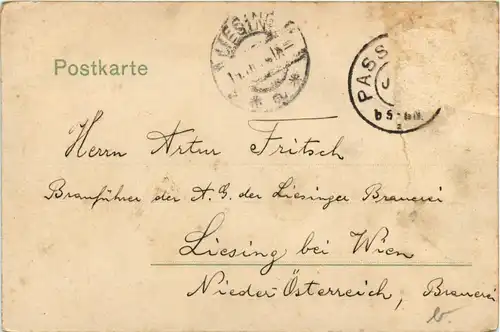 LIESING
PASS
Postkarte
Herrn Artur Fritsch
Brauführer der A. G. der Liesinger Brauerei
Liesing bei Wien
Nieder-Österreich, Brauerei
b.